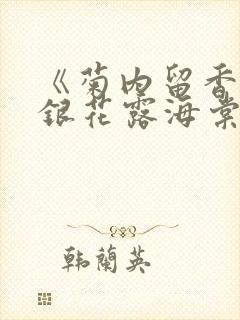 《菊内留香
銀花露海棠
韩蘭英